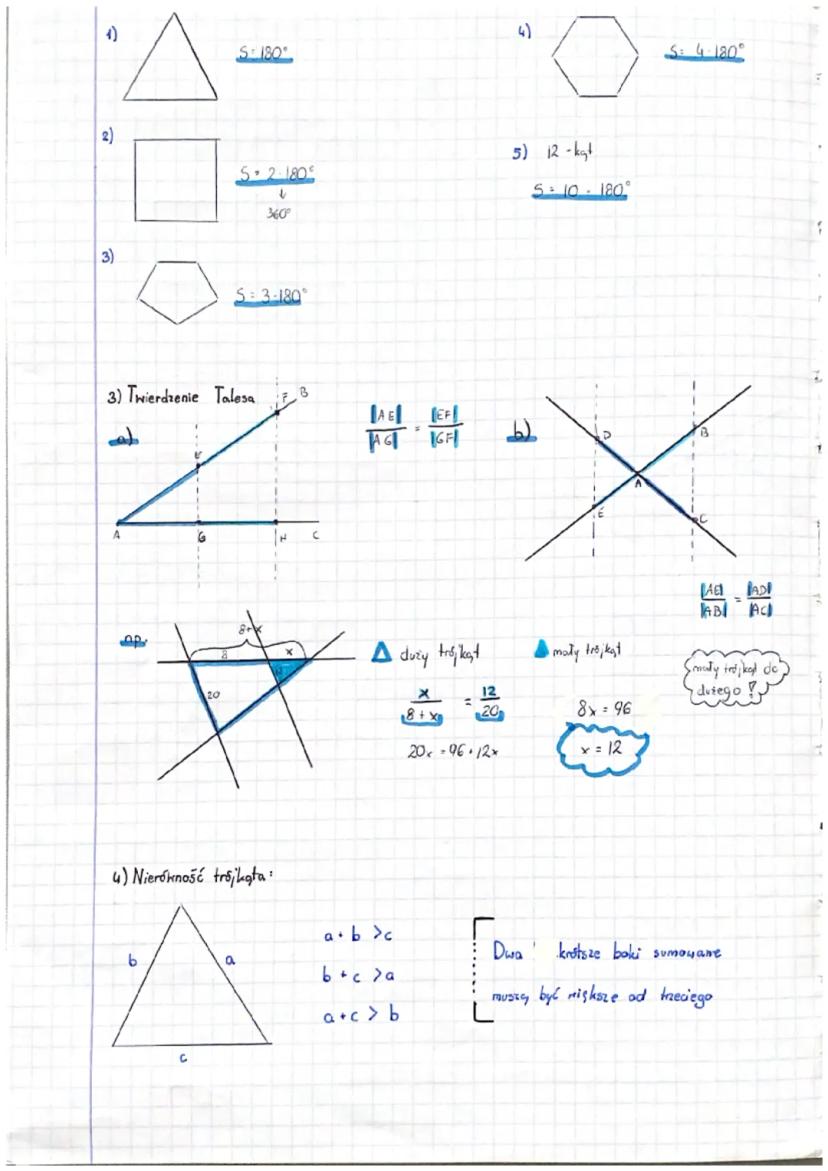 1)
S = 180°
2)
S = 2·180°
↓
360°
3)
S = 3·180°
4)
S = 4·180°
5) 12 - kąt
S = 10 · 180°
3) Twierdzenie Talesa
a)
F B
E
A G H C
|AE| / |AG| = |EF| / |GF|
b)
D B
A
E C
|AE| / |AB| = |AD| / |AC|
np.
8+x
8 x
20
duży trójkąt
mały trójkąt
mały trójkąt do
dużego !
x / 8 + x = 12 / 20
20x = 96 + 12x
8x = 96
x = 12
4) Nierówność trójkąta:
b a
c
a + b > c
b + c > a
a + c > b
Dwa krótsze boki sumowane
muszą być większe od trzeciego